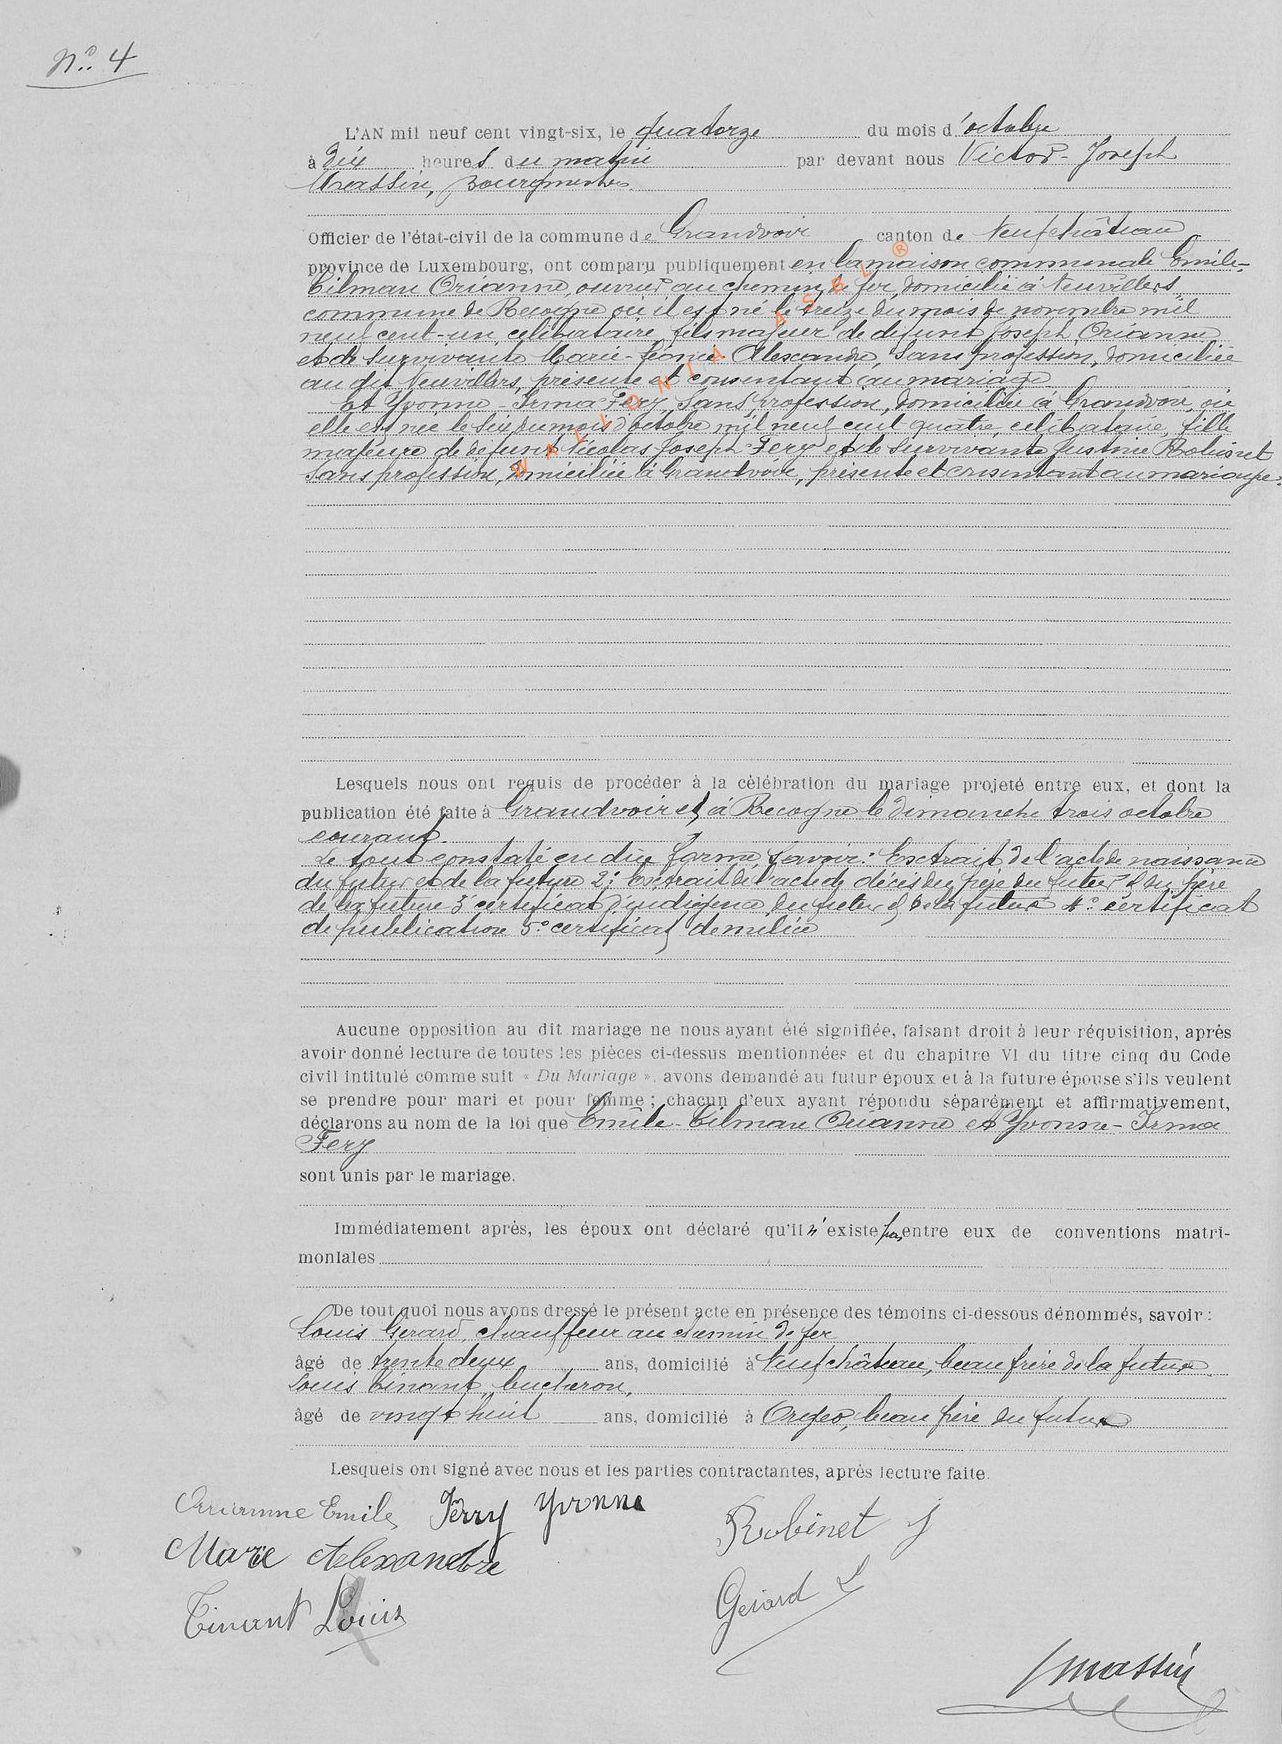 N° 4
L'AN mil neuf cent vingt-six, le quatorze du mois d'octobre
à dix heures du matin par devant nous Victor-Joseph
Massin, Bourgmestre
Officier de l'état-civil de la commune de Grandvoir canton de Neufchâteau
province de Luxembourg, ont comparu publiquement en la maison communale Emile-
Tilman Orianne, ouvrier au chemin de fer, domicilié à Neuvillers
commune de Recogne où il est né le treize du mois de novembre mil
neuf cent-un, célibataire, fils majeur de défunt Joseph Orianne
et de survivante Marie-Léonie Alexandre, sans profession, domiciliée
au dit Neuvillers, présente et consentant au mariage
Et Yvonne-Irma Fery, sans profession, domiciliée à Grandvoir, où
elle est née le six du mois d'octobre mil neuf cent quatre, célibataire, fille
majeure de défunt Nicolas Joseph Fery et de survivante Justine Robinet
sans profession, domiciliée à Grandvoir, présente et consentant au mariage.
WALLONIA ASBL ®
Lesquels nous ont requis de procéder à la célébration du mariage projeté entre eux, et dont la
publication été faite à Grandvoir et à Recogne le dimanche trois octobre
courant.
Le tout constaté en due forme, savoir: Extrait de l'acte de naissance
du futur et de la future 2° Extrait de l'acte de décès du père du futur & du père
de la future 3° certificat d'indigénat du futur et de la future 4° certificat
de publication 5° certificat de milice
Aucune opposition au dit mariage ne nous ayant été signifiée, faisant droit à leur réquisition, après
avoir donné lecture de toutes les pièces ci-dessus mentionnées et du chapitre VI du titre cinq du Code
civil intitulé comme suit « Du Mariage », avons demandé au futur époux et à la future épouse s'ils veulent
se prendre pour mari et pour femme ; chacun d'eux ayant répondu séparément et affirmativement,
déclarons au nom de la loi que Emile-Tilman Orianne et Yvonne-Irma
Fery
sont unis par le mariage.
Immédiatement après, les époux ont déclaré qu'il n'existe pas entre eux de conventions matri-
moniales
De tout quoi nous avons dressé le présent acte en présence des témoins ci-dessous dénommés, savoir :
Louis Gerard, chauffeur au chemin de fer
âgé de trente deux ans, domicilié à Neufchâteau, beau frère de la future
Louis Tinant, bucheron,
âgé de vingt huit ans, domicilié à Orgeo, beau frère du futur
Lesquels ont signé avec nous et les parties contractantes, après lecture faite.
Orianne Emile Férry Yvonne
Robinet J
Marie Alexandre
Gerard L
Tinant Louis
Massin